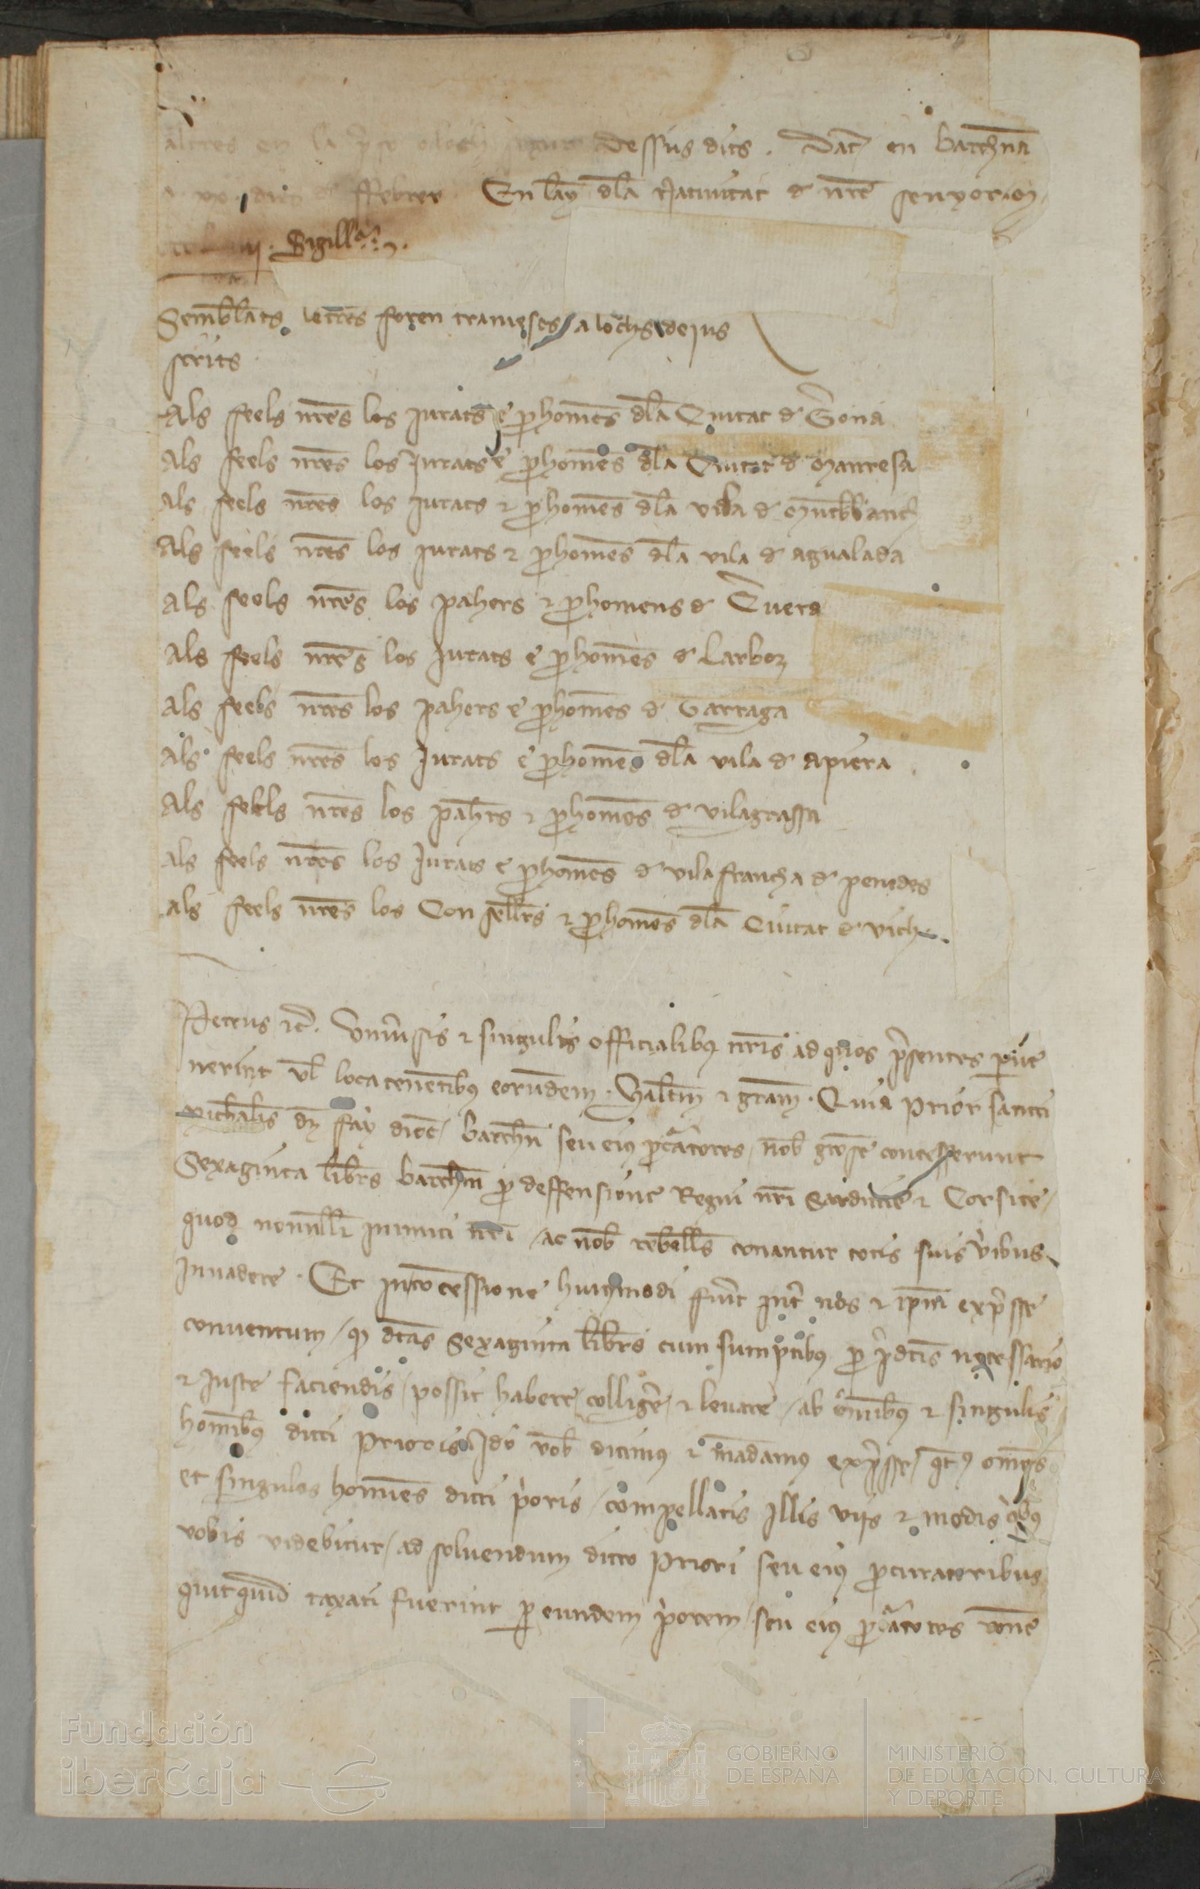 altres en la dessus dits. Dat en barchna
dies febrer En lay dla Natiuitat d nre senyor
Sigill
Semblats letres foren trameses a lochs dejus
scrits
Als feels nres los Jurats e phomes dla Ciutat d Gerona
Als feels nres los Jurats e phomes dla Ciutat d Manresa
Als feels nres los Jurats & phomes dla vila d Muntblanch
Als feels nres los Jurats & phomes dla vila d agualada
Als feels nres los pahers & phomens d Cuera
Als feels nres los Jurats e phomes d Larboz
Als feels nres los pahers e phomes d Tarraga
Als feels nres los Jurats e phomes dla vila d apiera
Als feels nres los pahrs & phomes d vilagrassa
Als feels nres los Jurats e phomes d vila francha d penedes
Als feels nres los Consellrs & phomes dla Ciutat d vich
Petrus &c. Vniusis & singulis officialibus nris ad quos psentes puе
nerint vl locatenetibus eorundem. Saltm & gram. Quia Prior sancti
michalis dz fay dioc barchn seu eius pcatores nob gose concesserunt
Sexaginta libres barchn p deffensione Regni nri Sardinie & Corsice
quod nonnulli inimici nri ac nob rebelles conantur totis suis viribus
Inuadere. Et in concessione huiusmodi fuit int nos & ipm expsse
conuentum q dcas Sexaginta libres cum sumptibus p pdcis necessario
& Iuste faciendis possit habere colligere & leuare ab omibus & singulis
homibus dicti Prioris Ido vob dicimus & madamus expsse omes
et singulos homines dicti prioris compellatis Illis viis & modis qbus
vobis videbitur ad soluendum dicto Priori seu eius pcuratoribus
quitquid taxati fuerint p eundem priorem seu eius pcatores rone
Fundación
iberCaja
GOBIERNO
DE ESPAÑA
MINISTERIO
DE EDUCACIÓN, CULTURA
Y DEPORTE